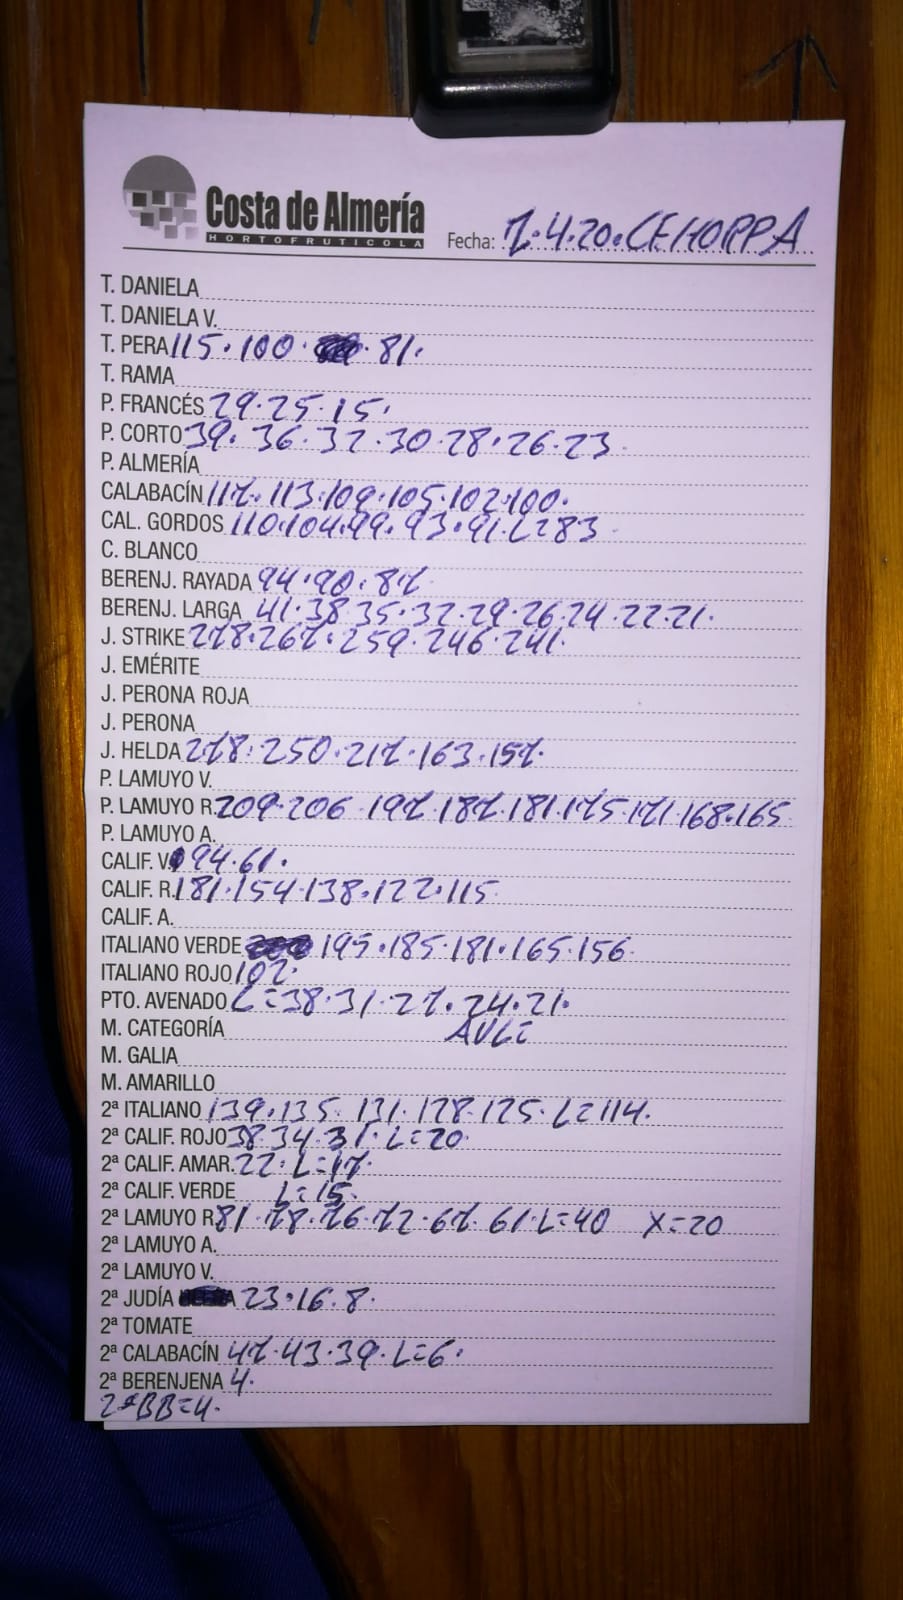 Costa de Almería
HORTOFRUTICOLA
Fecha: 7.4.20. CEHORPA
T. DANIELA
T. DANIELA V.
T. PERA 115.100. 81.
T. RAMA
P. FRANCÉS 29.25.15.
P. CORTO 39.36.32.30.28.26.23
P. ALMERÍA
CALABACÍN 117.113.109.105.102.100.
CAL. GORDOS 110.104.99.93.91.L=83
C. BLANCO
BERENJ. RAYADA 94.90.87
BERENJ. LARGA 41.38 35.32.29.26.24.22.21.
J. STRIKE 278.267.259.246.241.
J. EMÉRITE
J. PERONA ROJA
J. PERONA
J. HELDA 278.250.217.163.157.
P. LAMUYO V.
P. LAMUYO R. 209.206 197.187.181.175.171.168.165
P. LAMUYO A.
CALIF. V. 94.61.
CALIF. R. 181.154.138.122.115
CALIF. A.
ITALIANO VERDE 195.185.181.165.156.
ITALIANO ROJO 102.
PTO. AVENADO L=38.31.27.24.21.
M. CATEGORÍA
M. GALIA
M. AMARILLO
2ª ITALIANO 139.135.131.128.125.L=114.
2ª CALIF. ROJO 38 34.31.L=20.
2ª CALIF. AMAR. 22.L=17.
2ª CALIF. VERDE L=15.
2ª LAMUYO R. 81.78.76.72.67.61.L=40 X=20
2ª LAMUYO A.
2ª LAMUYO V.
2ª JUDÍA 23.16.8.
2ª TOMATE
2ª CALABACÍN 47.43.39.L=6.
2ª BERENJENA 4.
2ªBB=4.